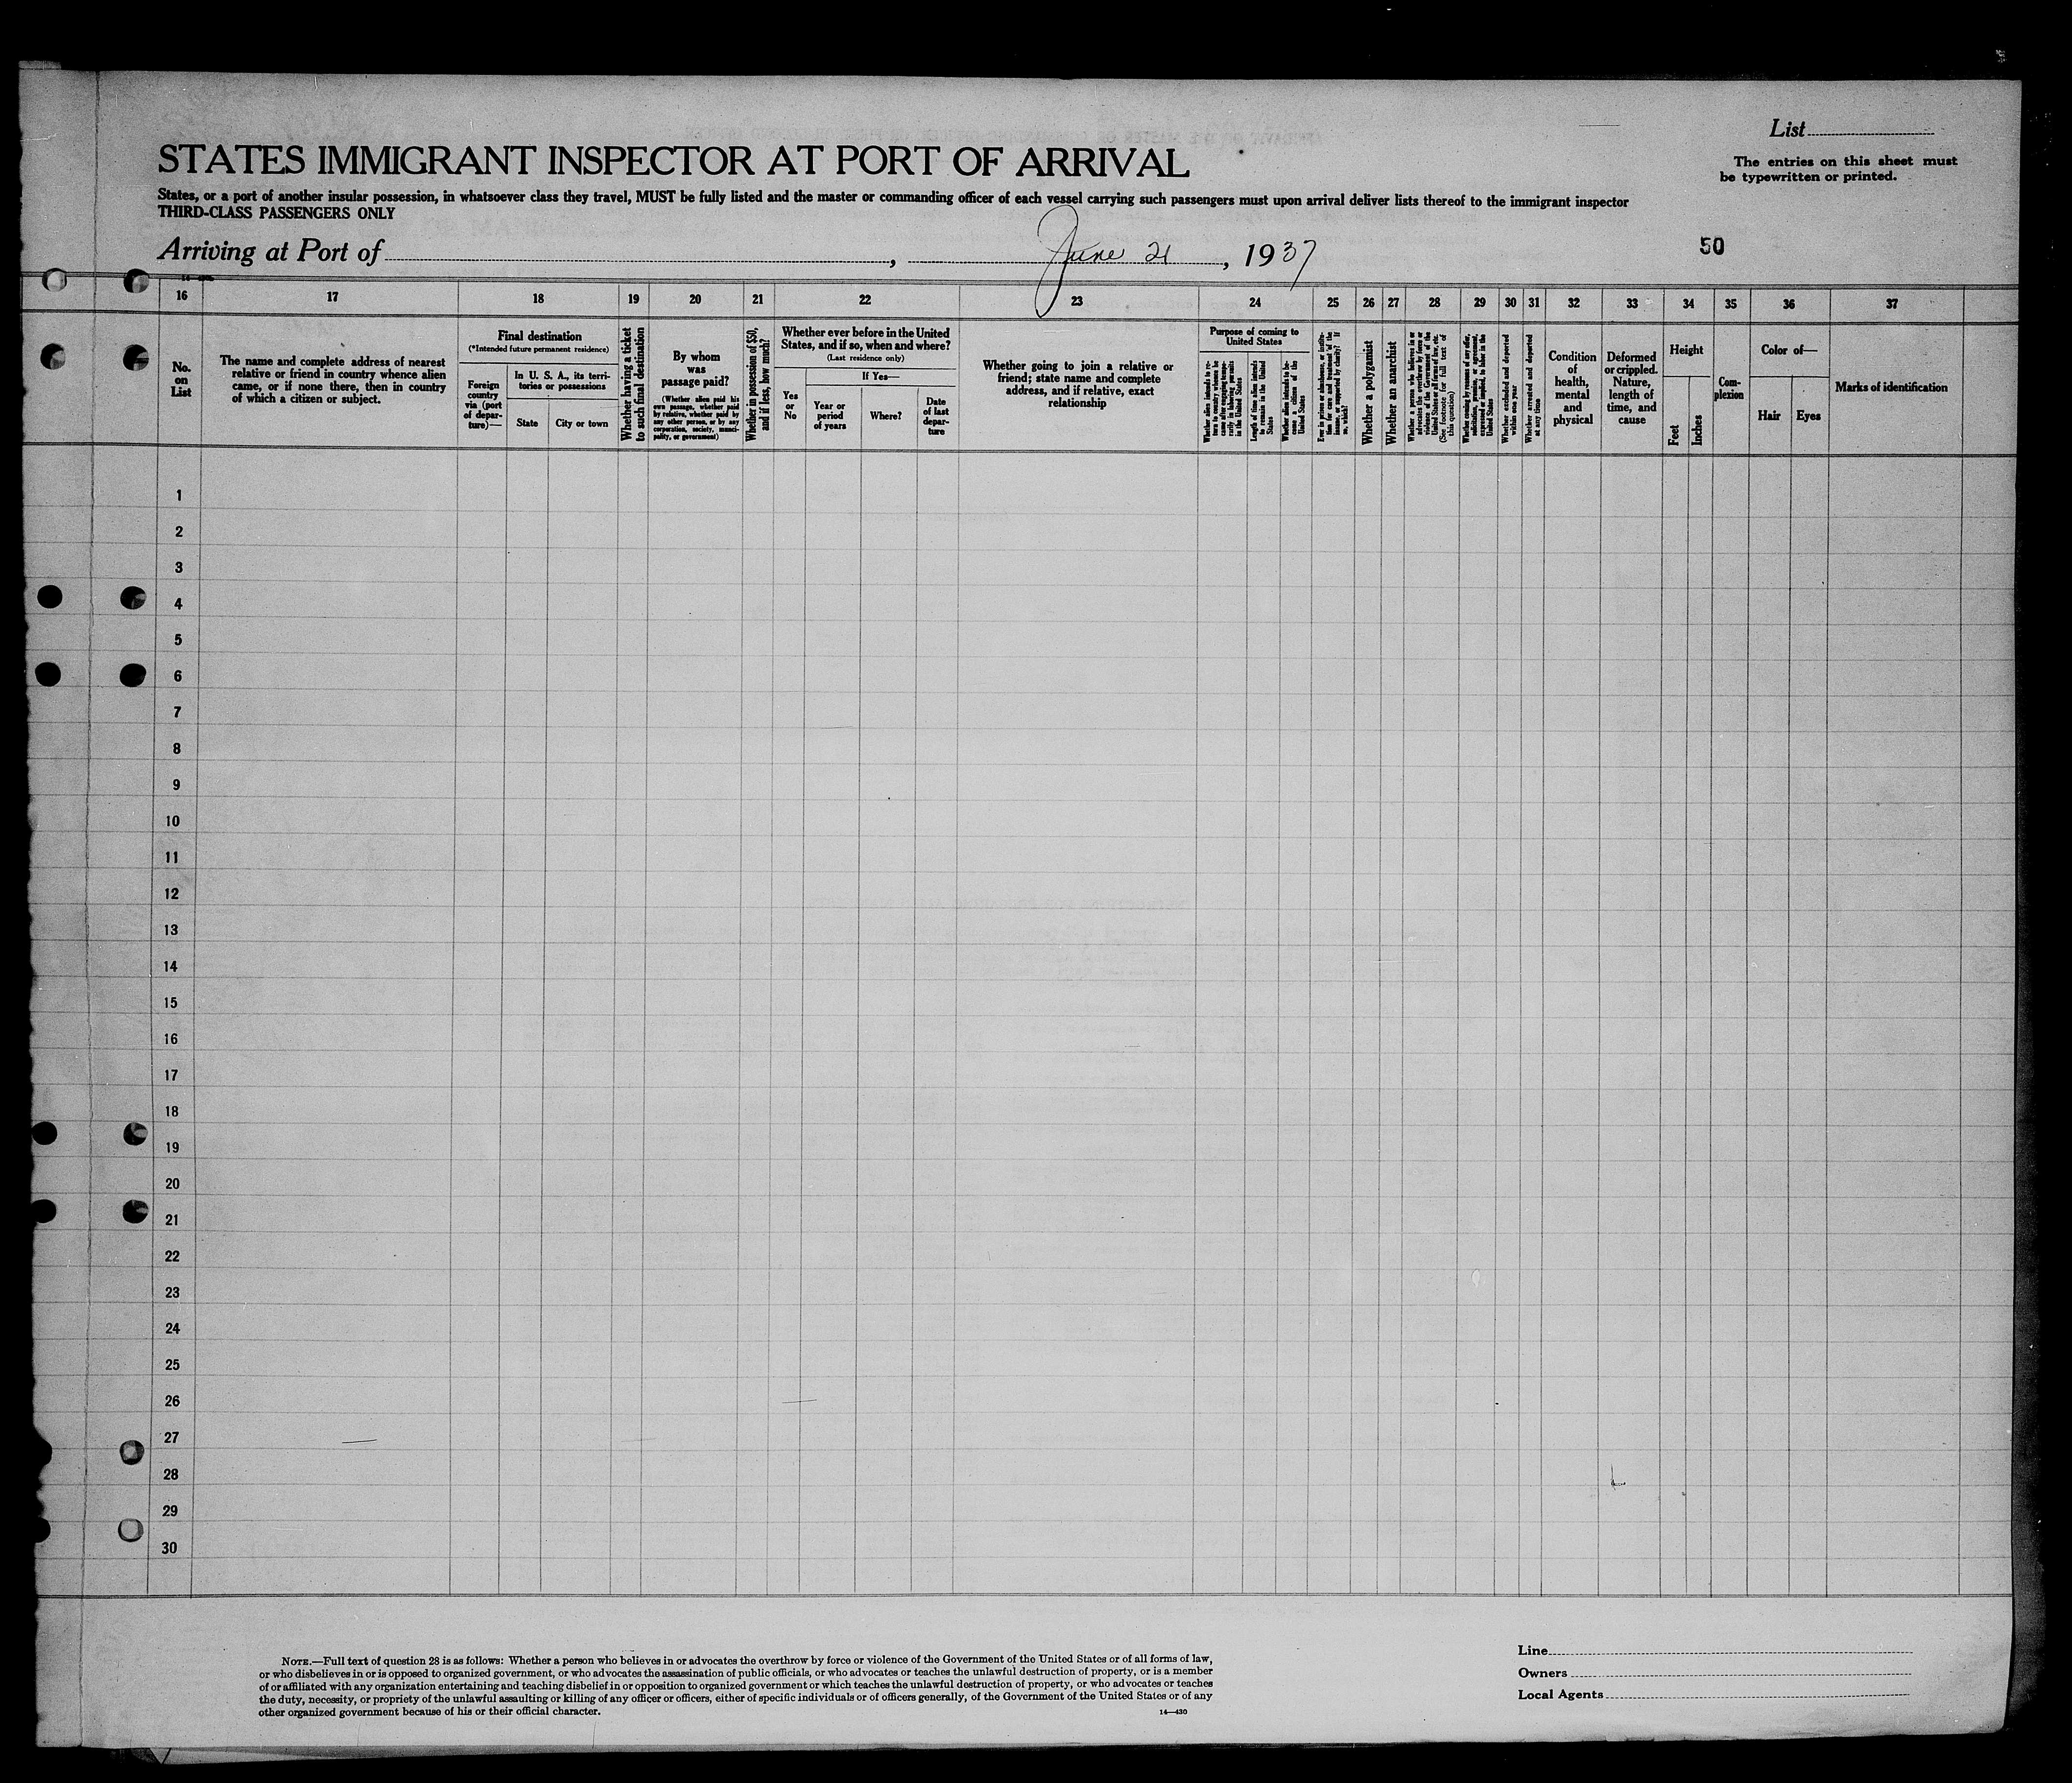 List
STATES IMMIGRANT INSPECTOR AT PORT OF ARRIVAL
The entries on this sheet must
be typewritten or printed.
States, or a port of another insular possession, in whatsoever class they travel, MUST be fully listed and the master or commanding officer of each vessel carrying such passengers must upon arrival deliver lists thereof to the immigrant inspector
THIRD-CLASS PASSENGERS ONLY
Arriving at Port of , June 21, 1937
50
16 17 18 19 20 21 22 23 24 25 26 27 28 29 30 31 32 33 34 35 36 37
No.
on
List
The name and complete address of nearest
relative or friend in country whence alien
came, or if none there, then in country
of which a citizen or subject.
Final destination
(*Intended future permanent residence)
Foreign
country
via (port
of depar-
ture)—
In U. S. A., its terri-
tories or possessions
State
City or town
Whether having a ticket
to such final destination
By whom
was
passage paid?
(Whether alien paid his
own passage, whether paid
by relative, whether paid by
any other person, or by any
corporation, society, munici-
pality, or government)
Whether in possession of $50,
and if less, how much?
Whether ever before in the United
States, and if so, when and where?
(Last residence only)
Yes
or
No
If Yes—
Year or
period
of years
Where?
Date
of last
depar-
ture
Whether going to join a relative or
friend; state name and complete
address, and if relative, exact
relationship
Purpose of coming to
United States
Whether alien intends to re-
turn to country whence he
came after engaging tempo-
rarily in laboring pursuits
in the United States
Length of time alien intends
to remain in the United
States
Whether alien intends to be-
come a citizen of the
United States
Ever in prison or almshouse, or institu-
tion for care and treatment of the
insane, or supported by charity? If
so, which?
Whether a polygamist
Whether an anarchist
Whether a person who believes in or
advocates the overthrow by force or
violence of the Government of the
United States or all forms of law, etc.
(See footnote for full text of
this question)
Whether coming by reason of any offer,
solicitation, promise, or agreement,
expressed or implied, to labor in the
United States
Whether excluded and deported
within one year
Whether arrested and deported
at any time
Condition
of
health,
mental
and
physical
Deformed
or crippled.
Nature,
length of
time, and
cause
Height
Feet
Inches
Com-
plexion
Color of—
Hair
Eyes
Marks of identification
1
2
3
4
5
6
7
8
9
10
11
12
13
14
15
16
17
18
19
20
21
22
23
24
25
26
27
28
29
30
NOTE.—Full text of question 28 is as follows: Whether a person who believes in or advocates the overthrow by force or violence of the Government of the United States or of all forms of law,
or who disbelieves in or is opposed to organized government, or who advocates the assassination of public officials, or who advocates or teaches the unlawful destruction of property, or is a member
of or affiliated with any organization entertaining and teaching disbelief in or opposition to organized government or which teaches the unlawful destruction of property, or who advocates or teaches
the duty, necessity, or propriety of the unlawful assaulting or killing of any officer or officers, either of specific individuals or of officers generally, of the Government of the United States or of any
other organized government because of his or their official character.
14—430
Line
Owners
Local Agents